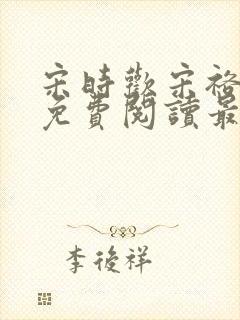 宋時歡宋裕
免費閱讀最
李後祥